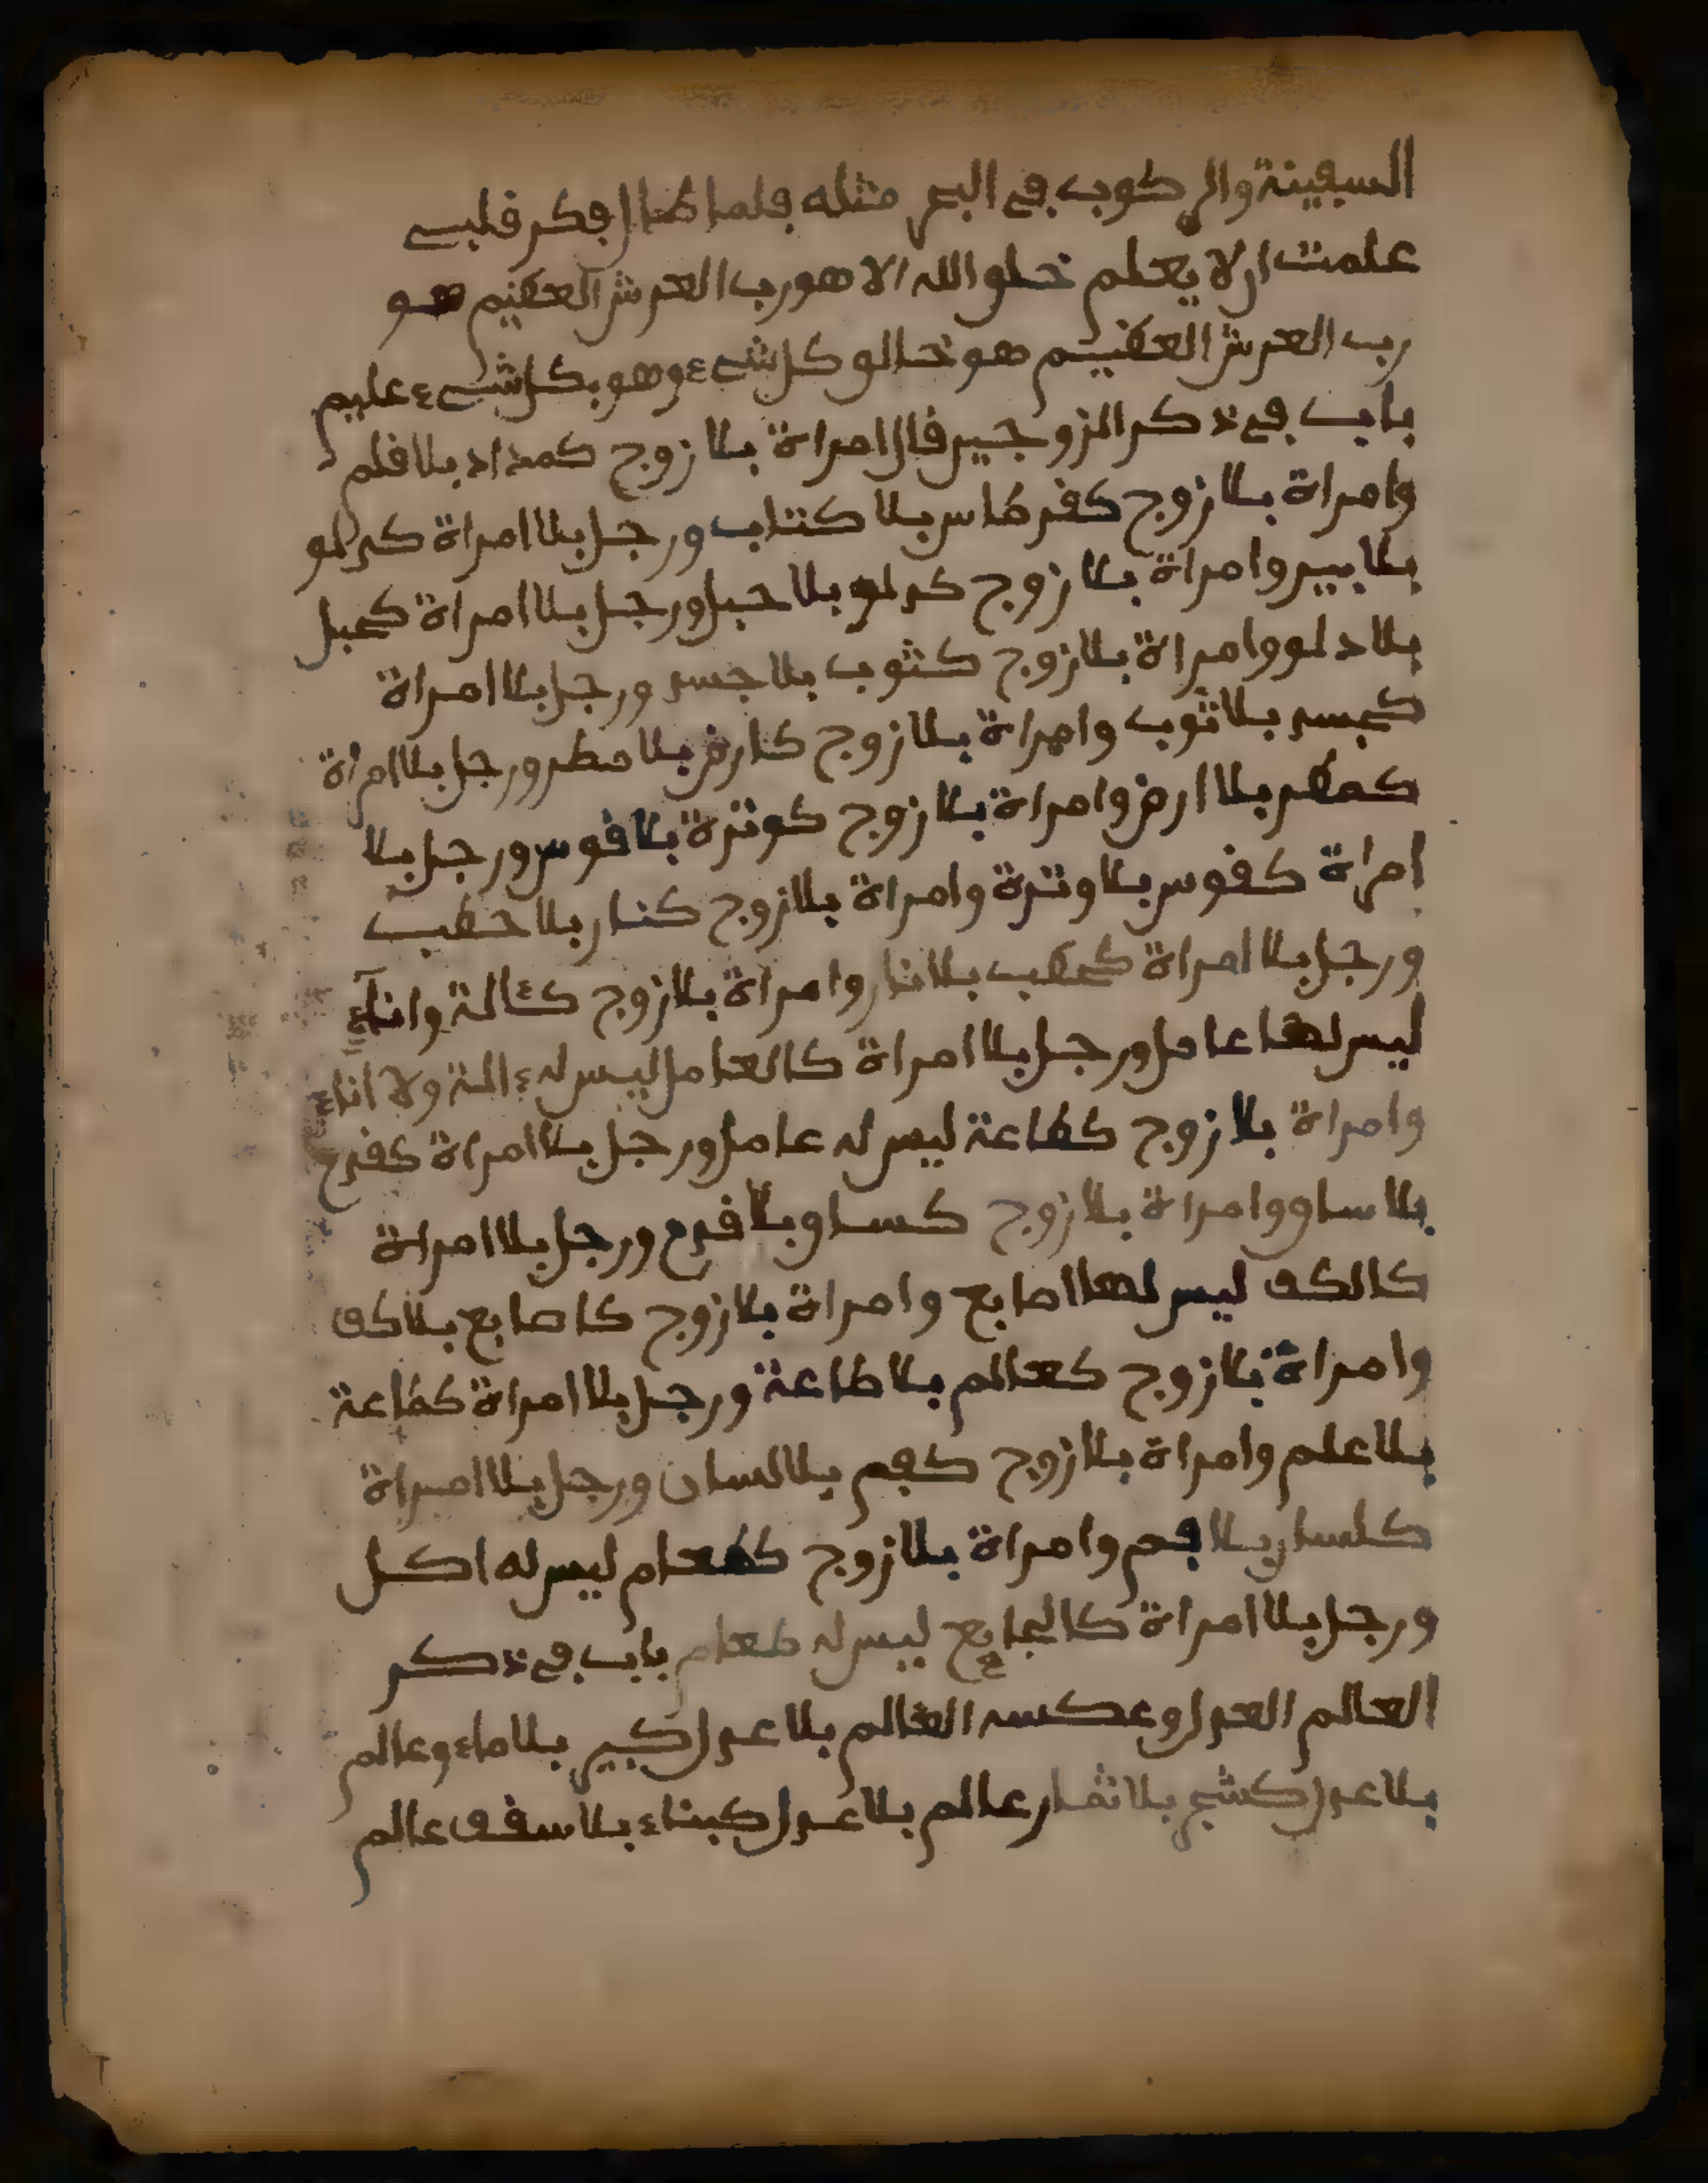 السفينة والركوب في البحر مثله فلما طال فكر قلبي
علمت ان لا يعلم خلق الله الا هو رب العرش العظيم هو
رب العرش العظيم هو خالق كل شيء وهو بكل شيء عليم
باب في ذكر الزوجين قال امراة بلا زوج كمداد بلا قلم
وامراة بلا زوج كقرطاس بلا كتاب ورجل بلا امراة كدلو
بلا بير وامراة بلا زوج كدلو بلا حبل ورجل بلا امراة كحبل
بلا دلو وامراة بلا زوج كثوب بلا جسد ورجل بلا امراة
كجسد بلا ثوب وامراة بلا زوج كارض بلا مطر ورجل بلا امراة
كمطر بلا ارض وامراة بلا زوج كوترة بلا قوس ورجل بلا
امراة كقوس بلا وترة وامراة بلا زوج كنار بلا حطب
ورجل بلا امراة كحطب بلا نار وامراة بلا زوج كءالة واناء
ليس لها عامل ورجل بلا امراة كالعامل ليس له ءالة ولا اناء
وامراة بلا زوج كطاعة ليس له عامل ورجل بلا امراة كفرح
بلا ساو وامراة بلا زوج كساو بلا فرح ورجل بلا امراة
كالكف ليس لها اصابع وامراة بلا زوج كاصابع بلا كف
وامراة بلا زوج كعالم بلا طاعة ورجل بلا امراة كطاعة
بلا علم وامراة بلا زوج كفم بلا لسان ورجل بلا امراة
كلسان بلا فم وامراة بلا زوج كطعام ليس له اكل
ورجل بلا امراة كالجايع ليس له طعام باب في ذكر
العالم العدل وعكسه العالم بلا عدل كبير بلا ماء وعالم
بلا عدل كشجر بلا ثمار عالم بلا عدل كبناء بلا سقف عالم